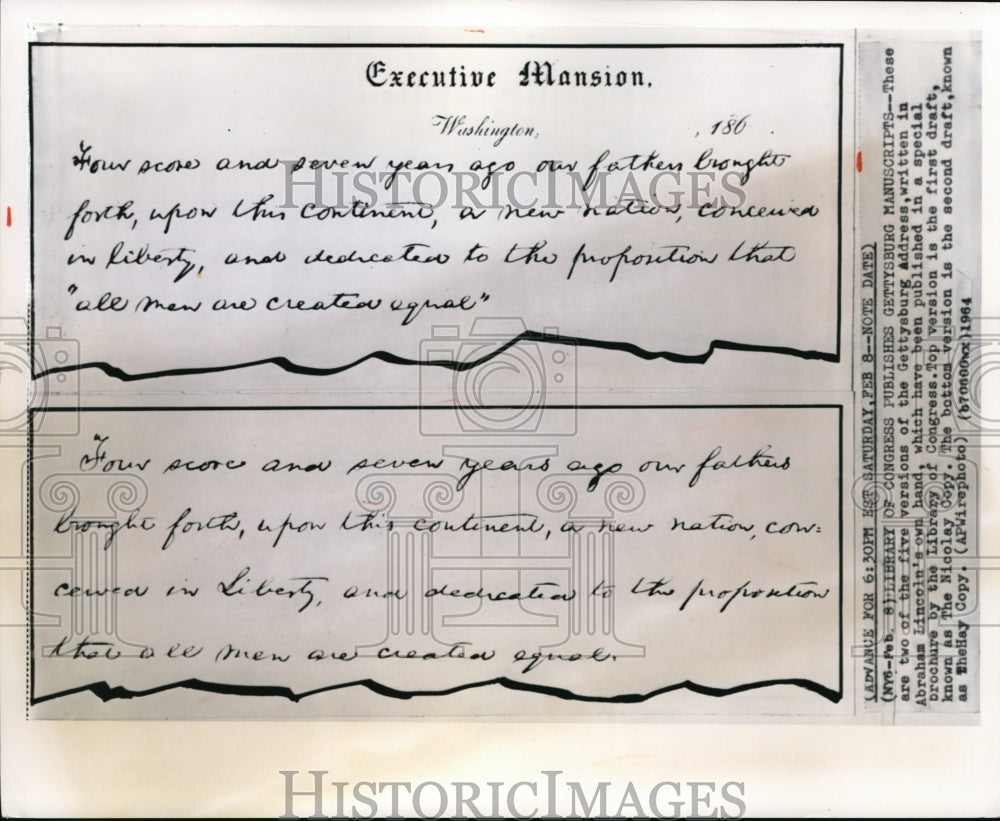 Executive Mansion,
Washington, , 186 .
Four score and seven years ago our fathers brought
forth, upon this continent, a new nation, conceived
in liberty, and dedicated to the proposition that
"all men are created equal"
Four score and seven years ago our fathers
brought forth, upon this continent, a new nation, con=
ceived in Liberty, and dedicated to the proposition
that all men are created equal.
(ADVANCE FOR 6:30PM EST SATURDAY,FEB 8--NOTE DATE)
(NY6-Feb. 8)LIBRARY OF CONGRESS PUBLISHES GETTYSBURG MANUSCRIPTS--These
are two of the five versions of the Gettysburg Address,written in
Abraham Lincoln's own hand, which have been published in a special
brochure by the Library of Congress.Top version is the first draft,
known as The Nicolay Copy. The bottom version is the second draft,known
as TheHay Copy. (APWirephoto) (b70600wx)1964
HISTORICIMAGES
HISTORICIMAGES
HISTORICIMAGES